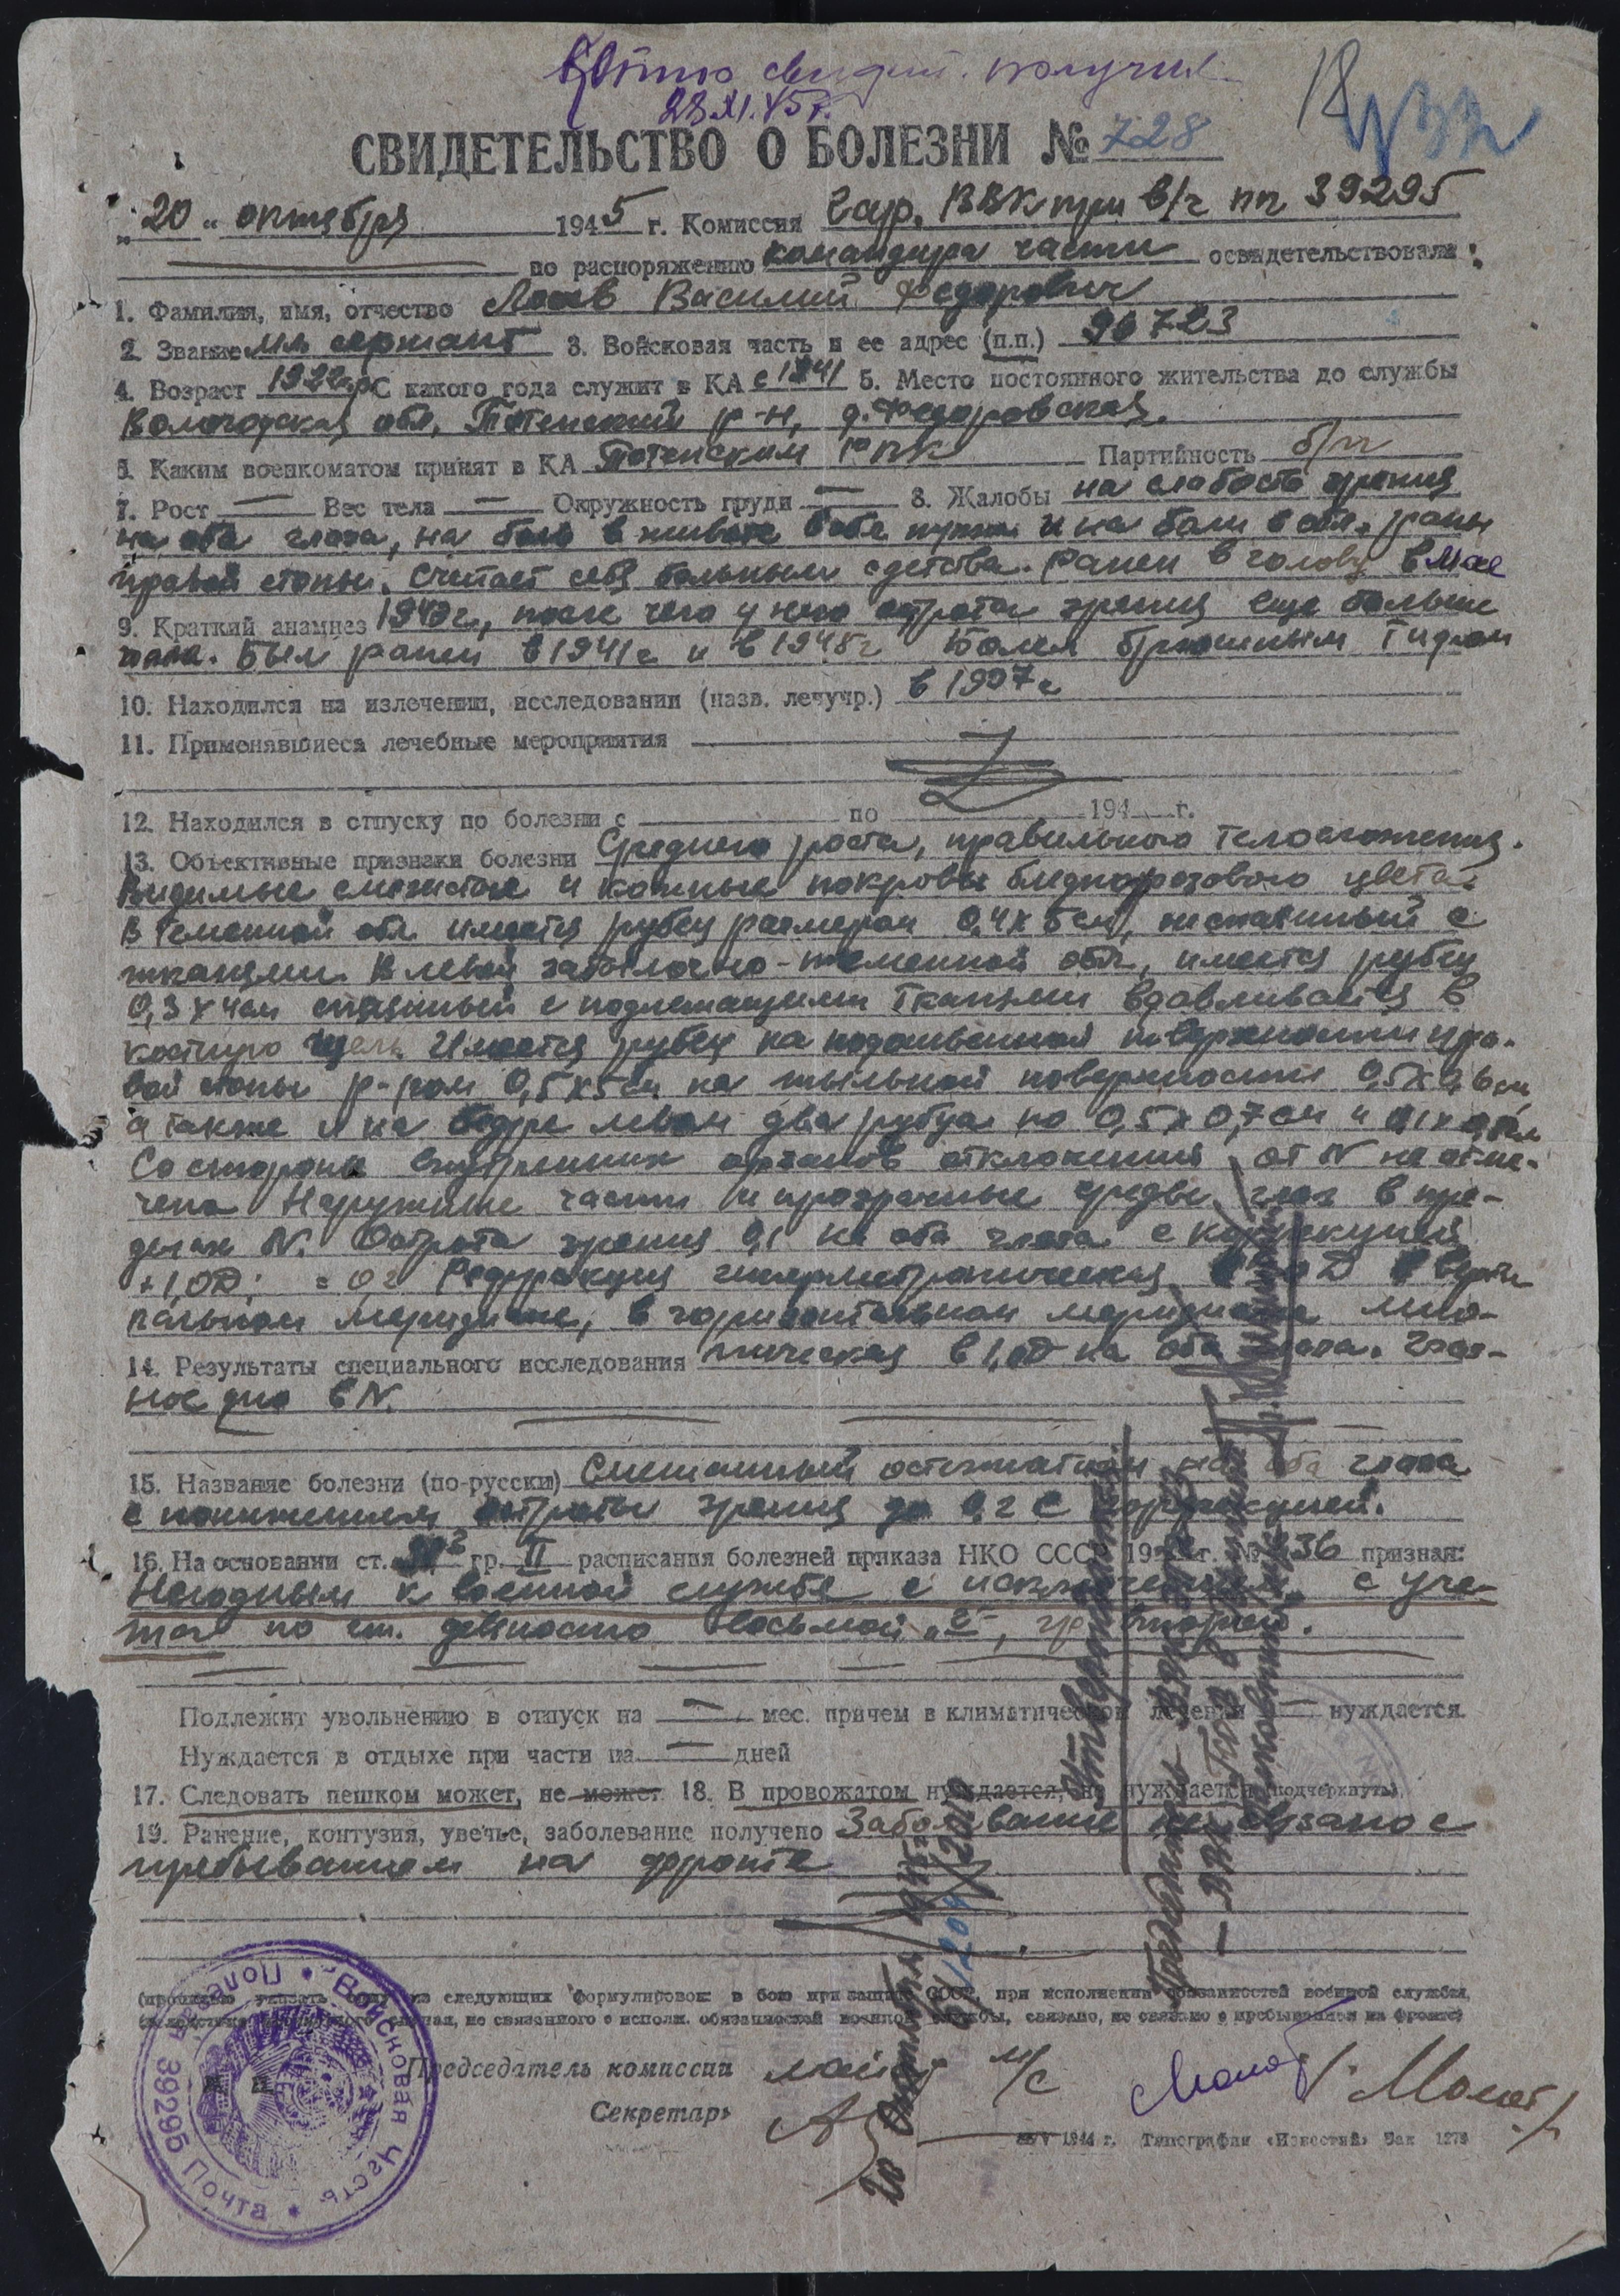 Копию свидет. получил
23.XI.45г.
18
СВИДЕТЕЛЬСТВО О БОЛЕЗНИ № 728
„20“ октября 1945 г. Комиссия Гар. ВВК при в/ч пп 39295
по распоряжению командира части освидетельствовала:
1. Фамилия, имя, отчество Василий Федорович
2. Звание мл сержант 3. Войсковая часть и ее адрес (п.п.) 96723
4. Возраст 1922г. С какого года служит в КА с 1941 5. Место постоянного жительства до службы
Вологодская обл, Тотемский р-н, д. Федоровская.
6. Каким военкоматом принят в КА Тотемским РВК Партийность б/п
7. Рост — Вес тела — Окружность груди — 8. Жалобы на слабость зрения
на оба глаза, на боль в животе в обл. пупка и на боли в обл. раны
правой стопы. Считает себя больным с детства. Ранен в голову в мае
9. Краткий анамнез г., после чего у него острота зрения еще больше
Был ранен в 1941г и в Болел брюшным тифом
10. Находился на излечении, исследовании (назв. лечучр.) в 1937г
11. Применявшиеся лечебные мероприятия
12. Находился в отпуску по болезни с по 194 г.
13. Объективные признаки болезни Среднего роста, правильного телосложения.
Видимые слизистые и кожные покровы бледнорозового цвета.
В теменной обл имеется рубец размером 0,4х5см, неспаянный с
тканями. В левой затылочно-теменной обл., имеется рубец
0,3х4см спаянный с подлежащими тканями вдавливается в
костную щель Имеется рубец на подошвенной поверхности пра-
вой стопы р-ром 0,5х5см на тыльной поверхности
а также и на бедре левом два рубца по 0,5х0,7см и
Со стороны внутренних органов отклонений от N не отме-
чено Наружные части и прозрачные среды глаз в пре-
делах N. Острота зрения 0,1 на оба глаза с коррекцией
+1,0D; = 0,2 Рефракция гиперметропическая в D в верти-
кальном меридиане, в горизонтальном меридиане мио-
14. Результаты специального исследования пическая в 1,0D на оба глаза. Глаз-
ное дно в N.
15. Название болезни (по-русски) Смешанный астигматизм на оба глаза
с понижением остроты зрения до 0,2 с коррекцией.
16. На основании ст. гр. II расписания болезней приказа НКО СССР 19 г. № 336 признан:
Негодным к военной службе с исключением с уче-
та по ст. девяносто восьмой „в“, гр второй.
Подлежит увольнению в отпуск на — мес. причем в климатическом лечении — нуждается.
Нуждается в отдыхе при части на — дней
17. Следовать пешком может, не может 18. В провожатом нуждается, не нуждается (подчеркнуть).
19. Ранение, контузия, увечье, заболевание получено Заболевание не связано с
пребыванием на фронте
(правильно указать одну из следующих формулировок: в бою при защите СССР, при исполнении обязанностей военной службы,
вследствие несчастного случая, не связанного с исполн. обязанностей военной службы, связано, не связано с пребыванием на фронте)
Председатель комиссии майор м/с
Секретарь
1944 г. Типография «Известий» Зак 127
Утверждаю
Председатель
Войсковая часть * Полевая Почта 39295 *